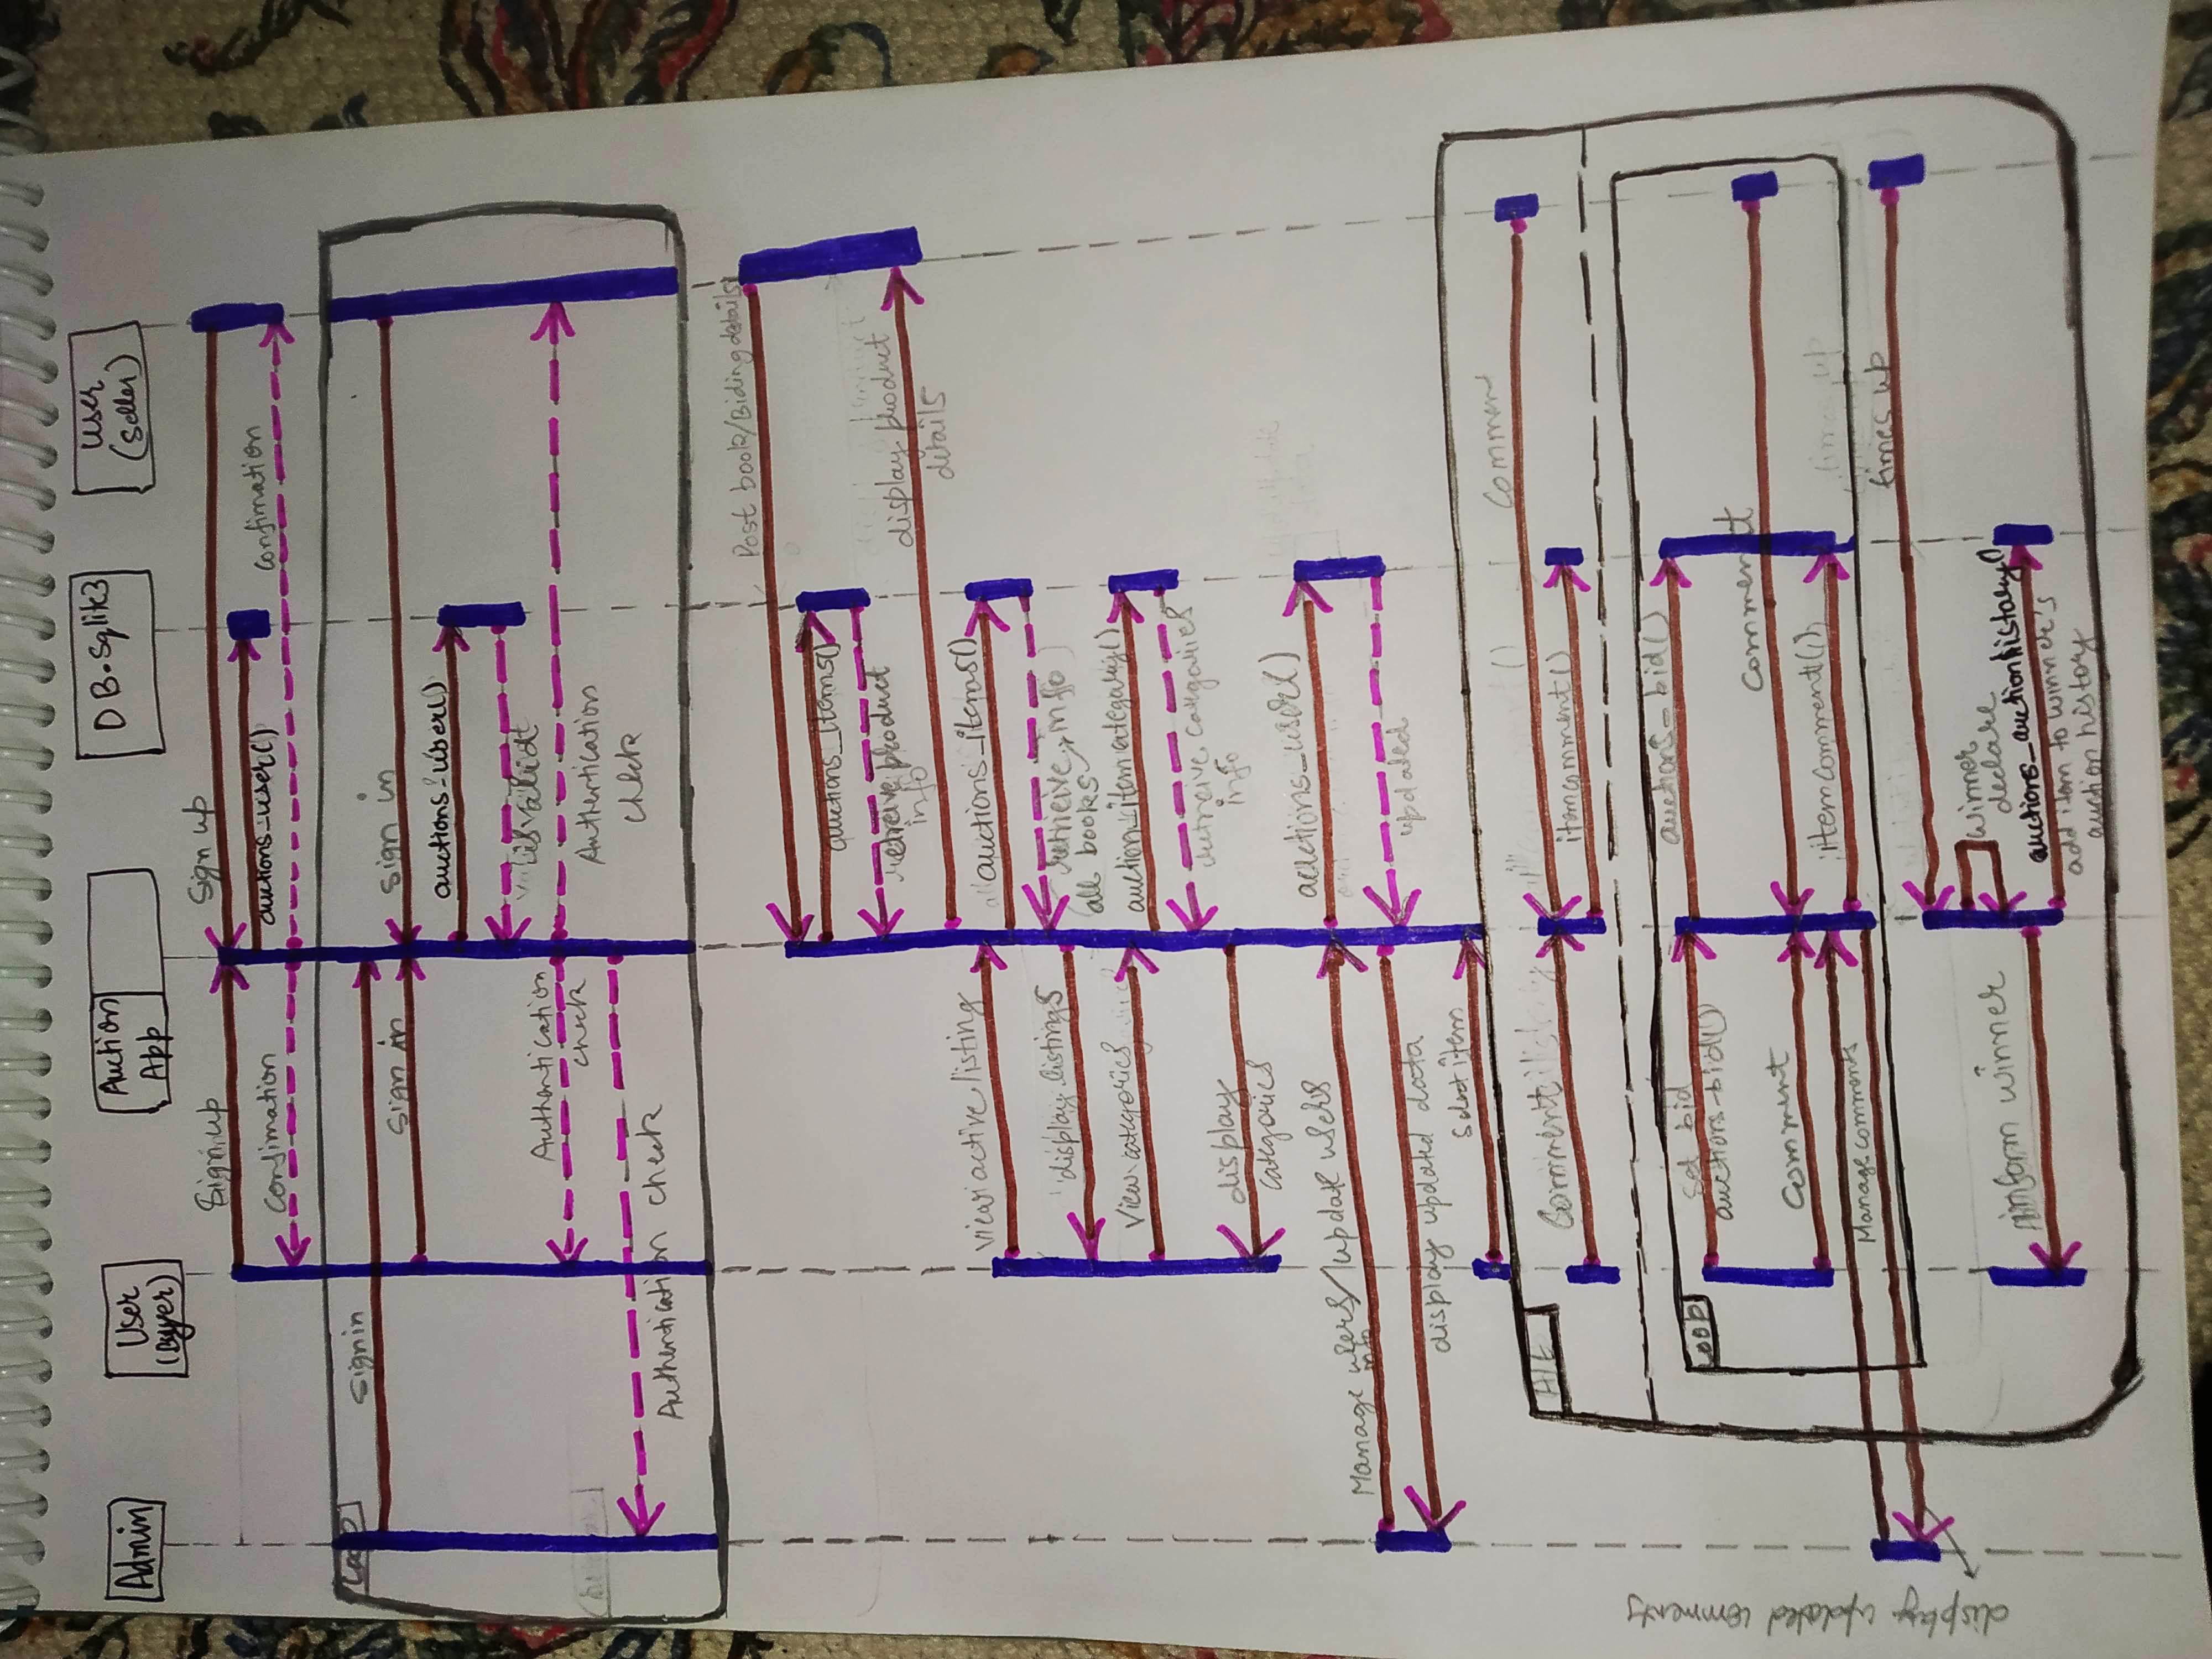 Admin
User
(Buyer)
Auction
App
DB.Sqlite3
User
(Seller)
Sign up
Sign up
auctions_user()
Confimation
Confimation
Loop
Signin
Sign in
Sign in
auctions_user()
isvalid
Authentication
check
Authentication
check
Authentication check
Post book/Biding details
auctions_items()
retreive product
info
display product
details
view active listing
auctions_items()
display listings
retrieive info
all books
View categories
auction_itemcategory()
retreive categories
info
display
categories
auctions_user()
Manage users/update users
info
updated
display updated data
Select item
Alt
Comment
Commen
itemcomment()
Loop
Set bid
auctions_bid()
auctions_bid()
Comment
Comment
itemComment()
Manage comments
display updated comments
times up
Winner
declare
inform winner
auctions_auctionhistory()
add item to winner's
auction history